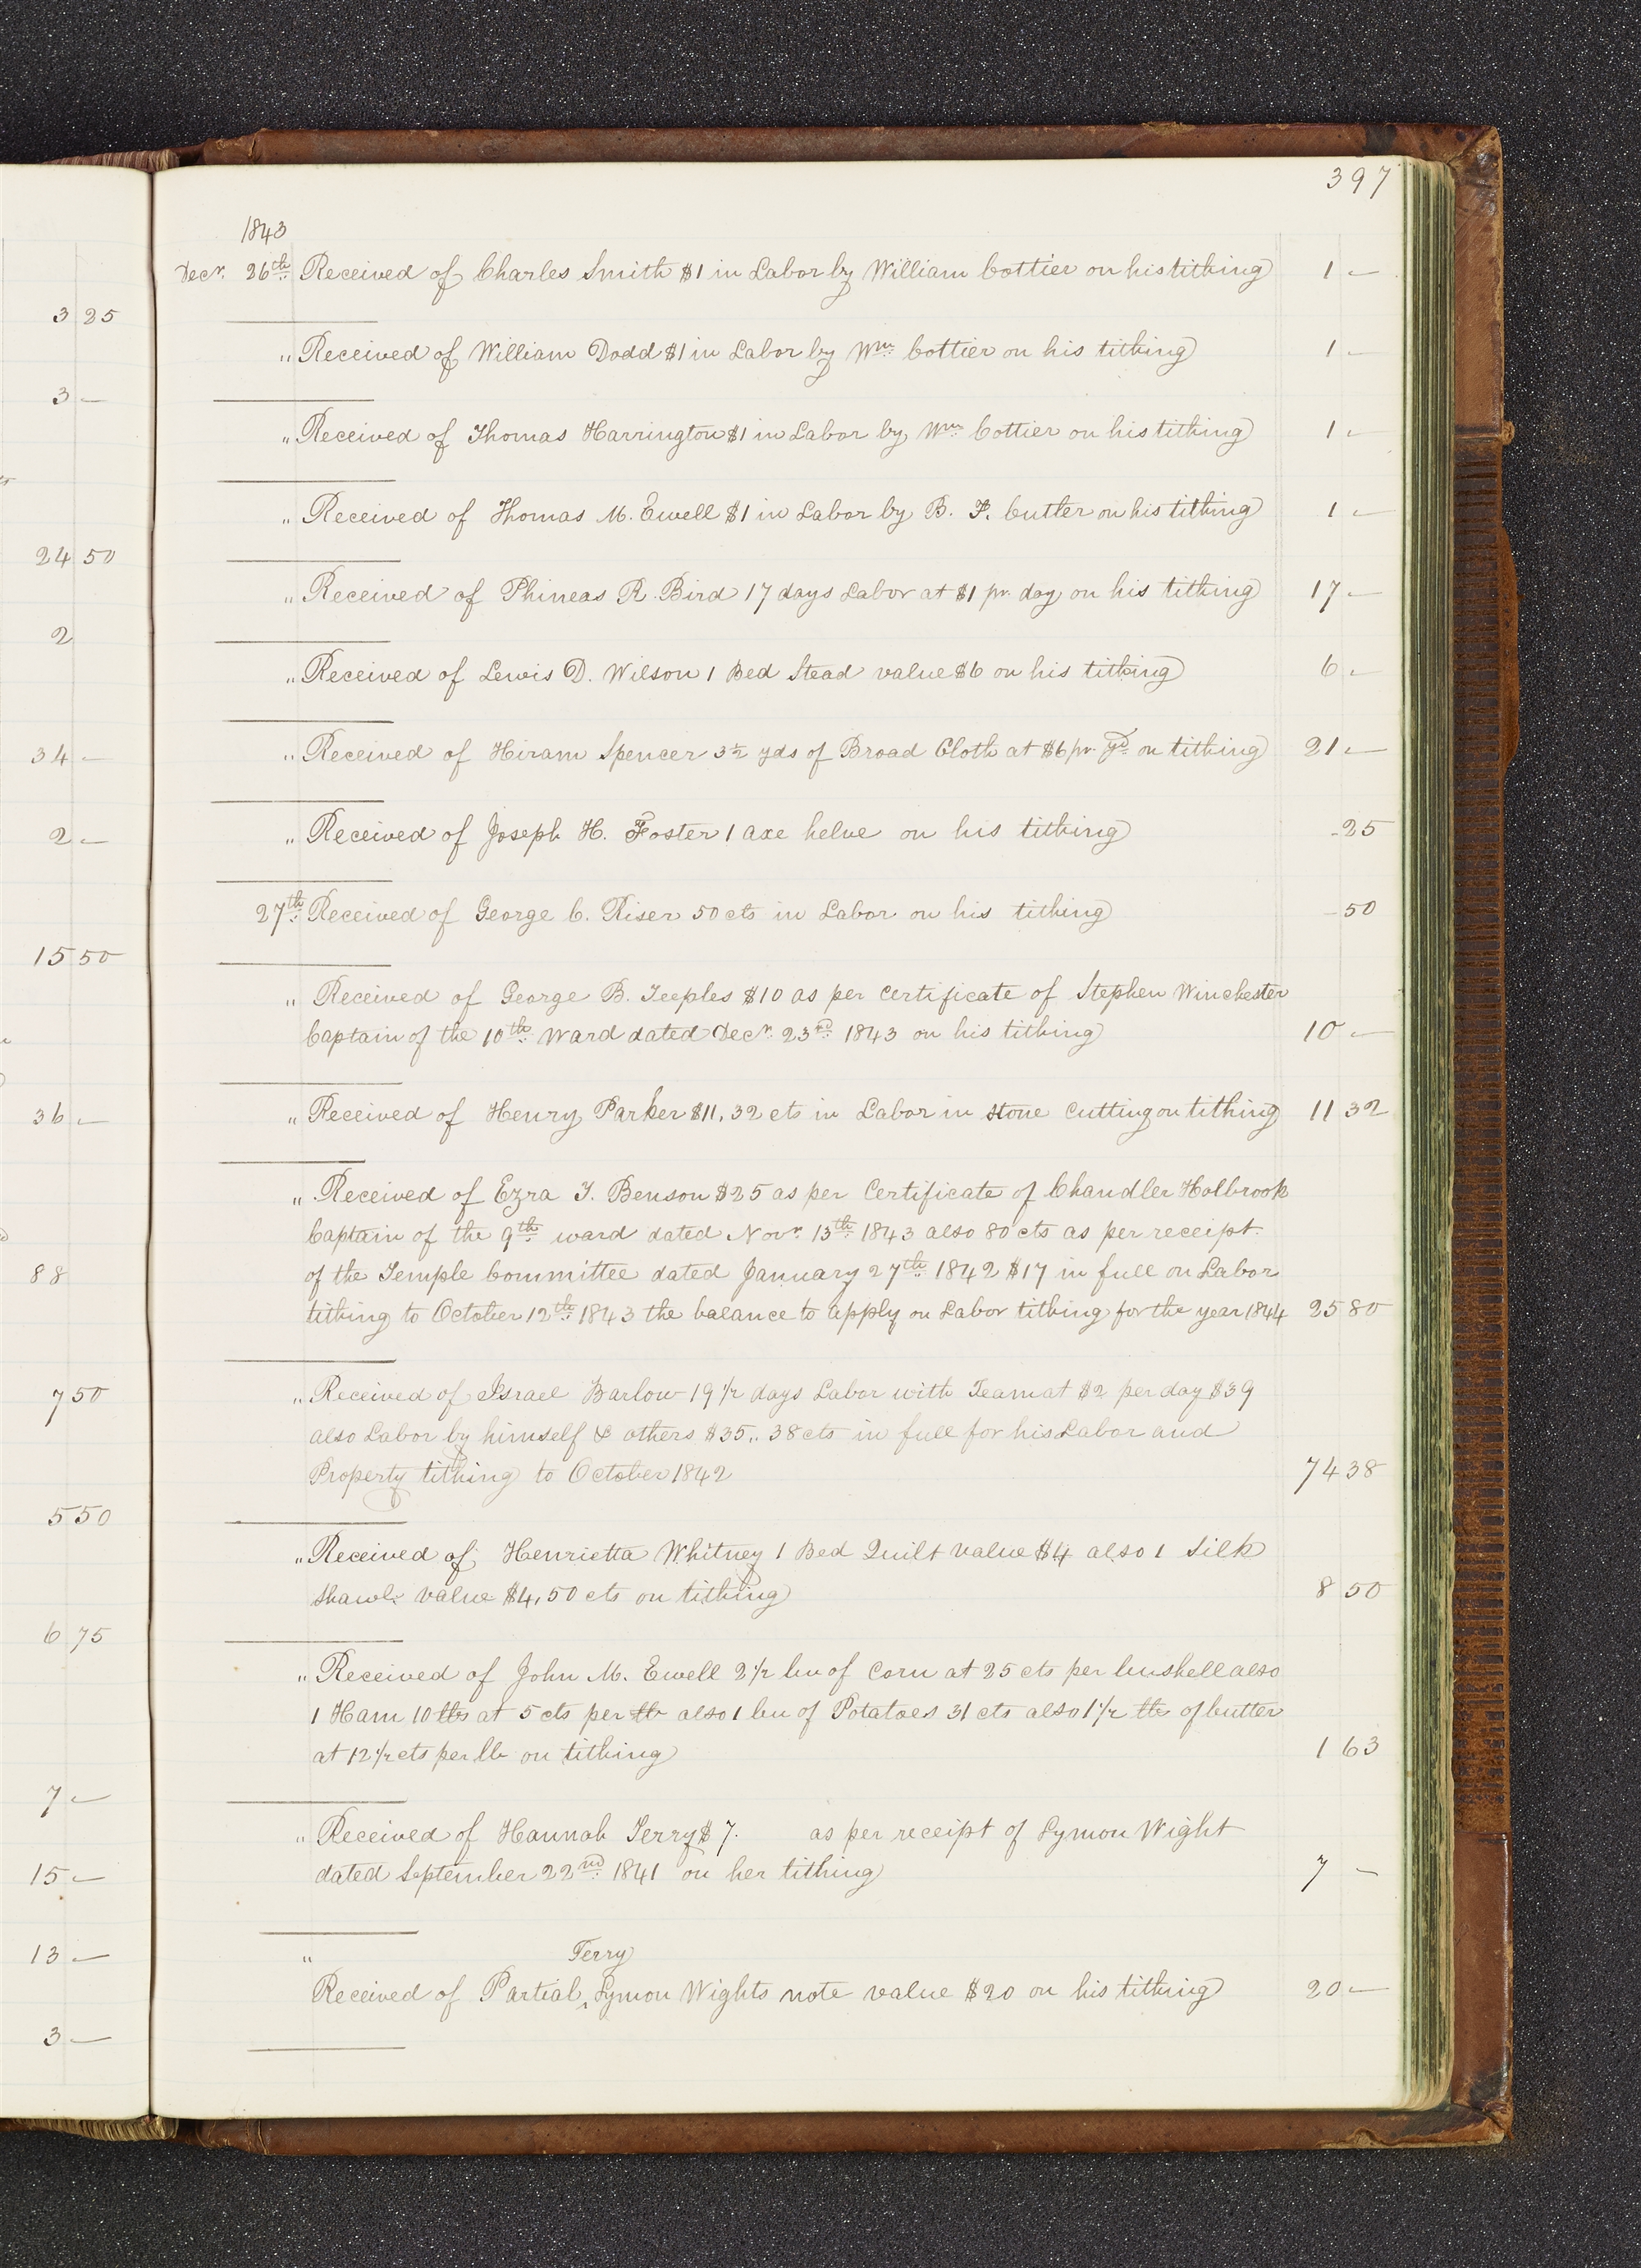 3 25
3 —
24 50
2
34 —
2 —
15 50
36 —
88
7 50
5 50
6 75
7 —
15 —
13 —
3 —
397
1843
Decr. 26th Received of Charles Smith $1 in Labor by William Cottier on his tithing 1 —
" Received of William Dodd $1 in Labor by Wm Cottier on his tithing 1 —
" Received of Thomas Harrington $1 in Labor by Wm Cottier on his tithing 1 —
" Received of Thomas M. Ewell $1 in Labor by B. F. Cutler on his tithing 1 —
" Received of Phineas R. Bird 17 days Labor at $1 pr. day on his tithing 17 —
" Received of Lewis D. Wilson 1 Bed Stead value $6 on his tithing 6 —
" Received of Hiram Spencer 3½ yds of Broad Cloth at $6 pr. yd. on tithing 21 —
" Received of Joseph H. Foster 1 axe helve on his tithing - 25
27th Received of George C. Riser 50 cts in Labor on his tithing - 50
" Received of George B. Teeples $10 as per certificate of Stephen Winchester
Captain of the 10th Ward dated Decr. 23rd 1843 on his tithing 10 —
" Received of Henry Parker $11,32 cts in Labor in stone Cutting on tithing 11 32
" Received of Ezra T. Benson $25 as per Certificate of Chandler Holbrook
Captain of the 9th ward dated Novr. 13th 1843 also 80 cts as per receipt
of the Temple Committee dated January 27th 1842 $17 in full on Labor
tithing to October 12th 1843 the balance to apply on Labor tithing for the year 1844 25 80
" Received of Israel Barlow 19½ days Labor with Team at $2 per day $39
also Labor by himself & others $35,, 38 cts in full for his Labor and
Property tithing to October 1842 74 38
" Received of Henrietta Whitney 1 Bed Quilt value $4 also 1 silk
shawl value $4,50 cts on tithing 8 50
" Received of John M. Ewell 2½ bu of Corn at 25 cts per bushell also
1 Ham 10 lbs at 5 cts per lb also 1 bu of Potatoes 31 cts also 1½ lbs of butter
at 12½ cts per lb on tithing 1 63
" Received of Hannah Terry $7. as per receipt of Lymon Wight
dated September 22nd 1841 on her tithing 7 —
" Terry
Received of Partial ^ Lymon Wights note value $20 on his tithing 20 —